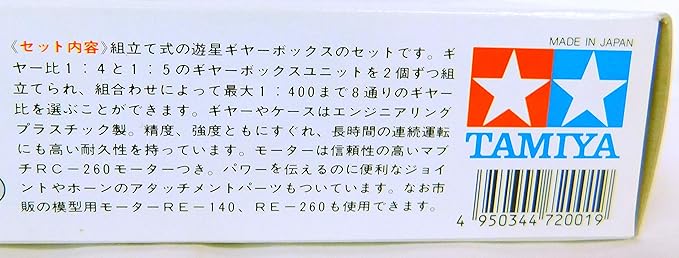 《セット内容》組立て式の遊星ギヤーボックスのセットです。ギ
ヤー比1:4と1:5のギヤーボックスユニットを2個ずつ組
立てられ、組合わせによって最大1:400まで8通りのギヤー
比を選ぶことができます。ギヤーやケースはエンジニアリング
プラスチック製。精度、強度ともにすぐれ、長時間の連続運転
にも高い耐久性を持っています。モーターは信頼性の高いマブ
チRC-260モーターつき。パワーを伝えるのに便利なジョイ
ントやホーンのアタッチメントパーツもついています。なお市
販の模型用モーターRE-140、RE-260も使用できます。
MADE IN JAPAN
TAMIYA
4 950344 720019